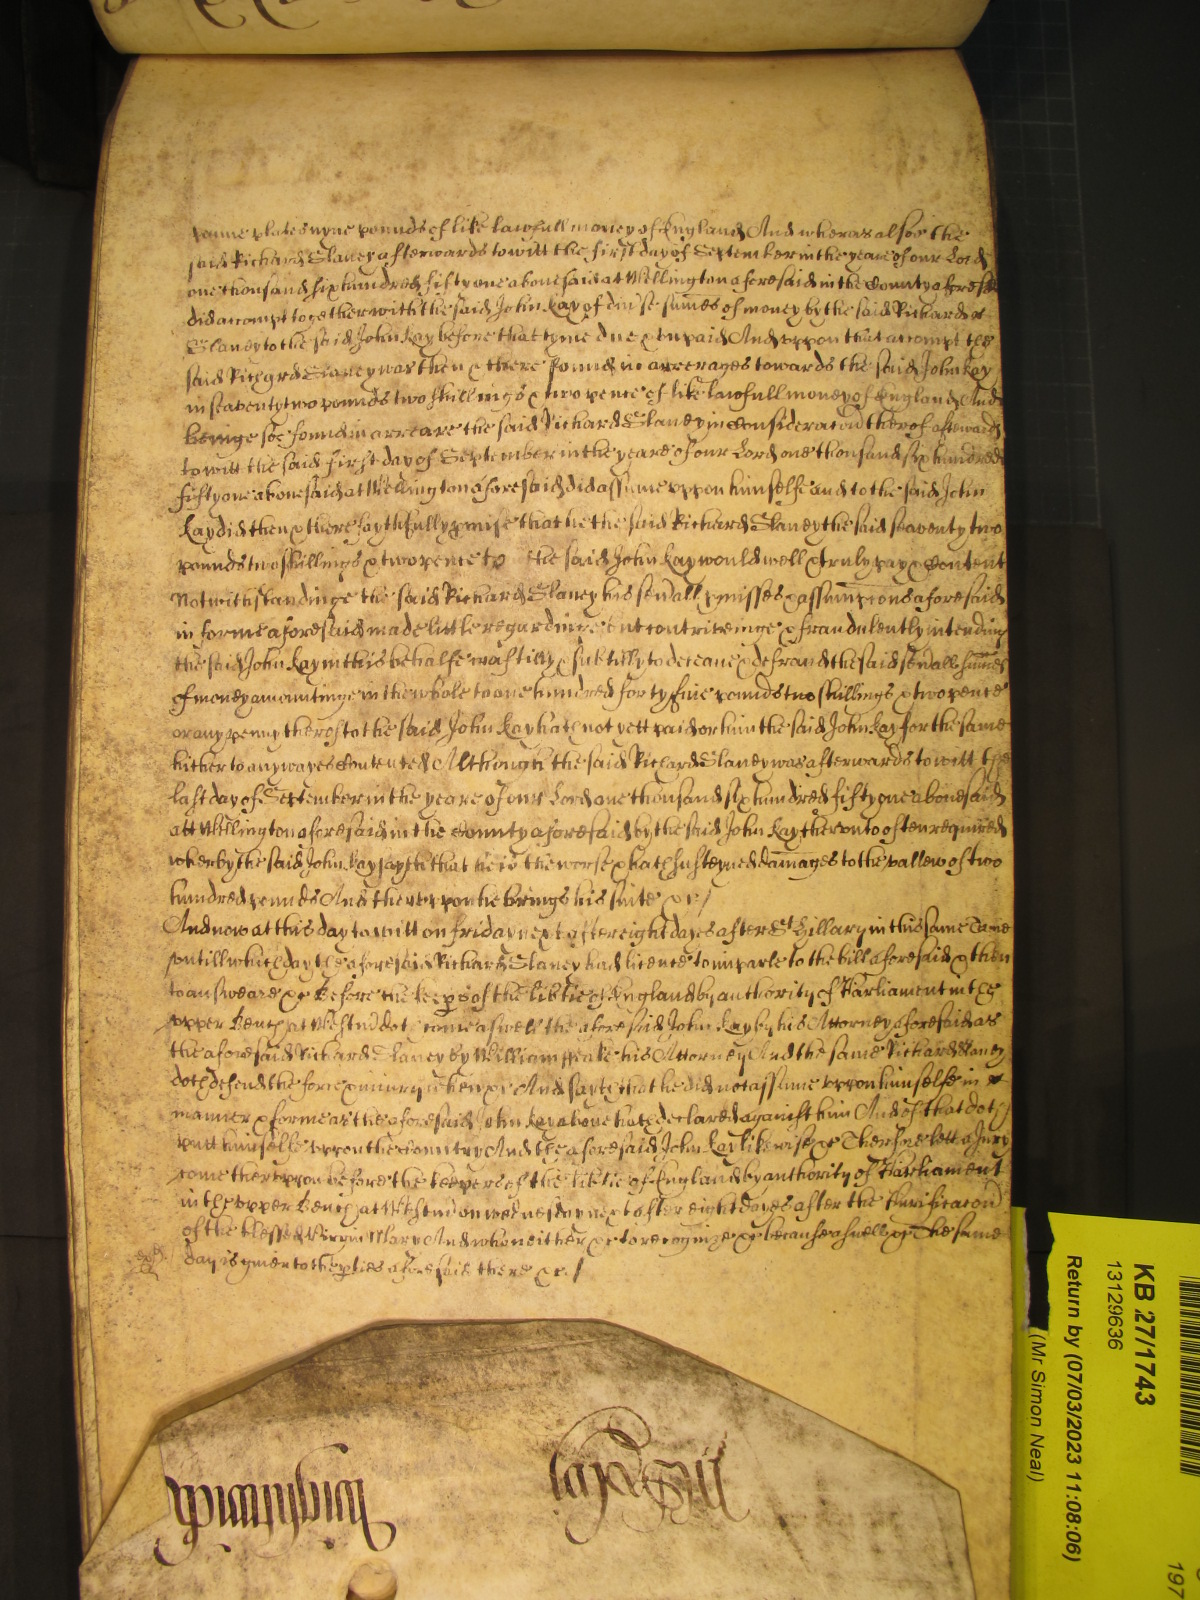 panne plates nyne pounds of like lawfull money of England And whereas alsoe the
said Richard Slaney afterwards to witt the first day of September in the yeare of our Lord
one thousand six hundred fifty one abovesaid at Wellington aforesaid in the County aforesd
did accompt together with the said John Kay of divse sum̄es of money by the said Richard
Slaney to the said John Kay before that tyme due & unpaid And uppon that accompt the
said Richard Slaney was then & there found in arrerages towards the said John Kay
in seaventy two pounds two shillings & two pence of like lawfull money of England And
beinge soe found in arreare the said Richard Slaney in Consideracon therof afterwards
to witt the said first day of September in the yeare of our Lord one thousand six hundred
fifty one abovesaid at Wellington aforesaid did assume uppon himselfe and to the said John
Kay did then & there faythfully pmise that he the said Richard Slaney the said seaventy two
pounds two shillings & two pence to the said John Kay would well & truly pay & Content
Notwithstandinge the said Richard Slaney his sevall pmisses & assumpcons aforesaid
in forme aforesaid made little regardinge but contriveinge & fraudulently intending
the said John Kay in this behalfe craftilly & subtilly to deceave & defraud the said sevall sum̄es
of money amountinge in the whole to one hundred forty five pounds two shillings & two pence
or any penny therof to the said John Kay hath not yett paid or him the said John Kay for the same
hitherto any wayes Contented Although the said Richard Slaney was afterwards to witt the
last day of September in the yeare of our Lord one thousand six hundred fifty one abovesaid
att Wellington aforesaid in the County aforesaid by the said John Kay therunto often required
wherby the said John Kay sayth that he is the worse & hath susteyned dam̄ages to the vallew of two
hundred pounds And thereuppon he brings his suite &c /
And now at this day to witt on friday next after eight dayes after St Hillary in this same Terme
untill which day the aforesaid Richard Slaney had licence to imparle to the bill aforesaid & then
to answeare &c Before the keeps of the libtie of England by authority of Parliament in the
upper Bench at Westm̄ doe come aswell the aforesaid John Kay by his Attorney aforesaid as
the aforesaid Richard Slaney by William Peake his Attorney And the same Richard Slaney
doth defend the force & iniury when &c And sayth that he did not assume uppon himselfe in
manner & forme as the aforesaid John Kay above hath declared against him And of that doth
putt himselfe uppon the Country And the aforesaid John Kay likewise &c Therfore lett a Jury
come theruppon before the keepers of the libtie of England by authority of Parliament
in the upper Bench at Westm̄ on wednesday next after eight dayes after the Purificacon
of the blessed Virgin Mary And who neither &c to recognize &c because aswell &c The same
day is given to the pties aforesaid there &c /
Wightwick
KB 27/1743
13129636
Return by (07/03/2023 11:08:06)
(Mr Simon Neal)
197